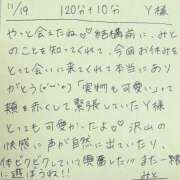 11/19 120分+10分 Y様
やっと会えたね♡結構前に、みと
のことを知ってくれてて、今回お休みを
とって会いに来てくれて本当にあり
がとう(>_<)「実物も可愛い」って
頬を赤くして緊張していたY様
とっても可愛かったよ♡沢山の
快感に声が自然に出ていたり、
体ビクビクしていて興奮したよ!!また一緒
に遊ぼうね!! みと